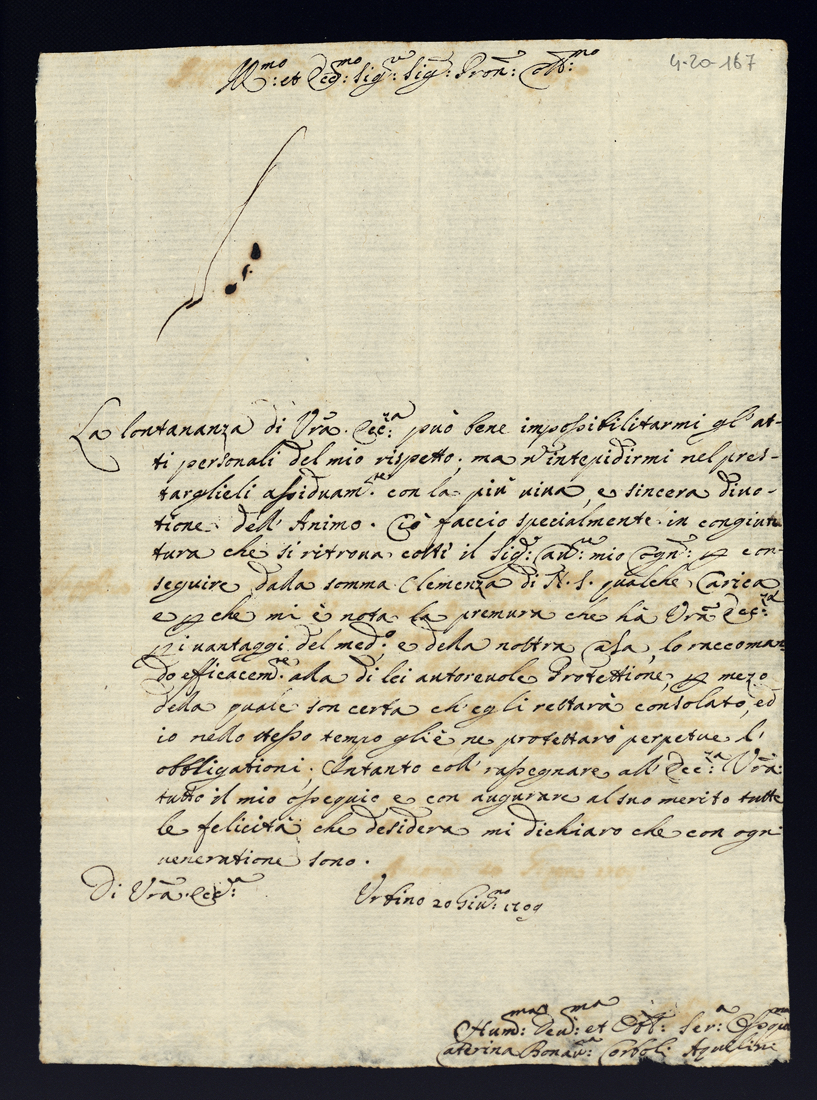 4-20-167
Ill:mo et Ecc:mo Sig:re Sig:r Pron: Coll:mo
La lontananza di Vrã Ecc:za può bene impossibilitarmi gl'at-
ti personali del mio rispetto, ma n'intepidirmi nel pres-
targlieli assiduam:te con la più viva, e sincera divo-
tione dell'Animo. Ciò faccio specialmente in congiun
tura che si ritrova costì il Sig:r mio per con-
seguire dalla somma Clemenza di N. S. qualche Carica
e perche mi è nota la premura che hà Vrã Ecc:za
per i vantaggi del med:o e della nostra Casa, lo raccoman
do efficacem:te alla di lei autorevole Protettione, per mezo
della quale son certa ch'egli restarà consolato, ed
io nello stesso tempo gliè ne protestarò perpetue l'
obbligationi. Intanto coll'rassegnare all'Ecc:za Vrã
tutto il mio ossequio e con augurare al suo merito tutte
le felicità che desidera mi dichiaro che con ogni
veneratione sono.
Di Vrã Ecc:a Urbino 20 Giu:no 1709
Hum:ma Dev:ma et Obl: Ser:a Ossequ:ma
Caterina Bonav:ra Corbol: Aquilini